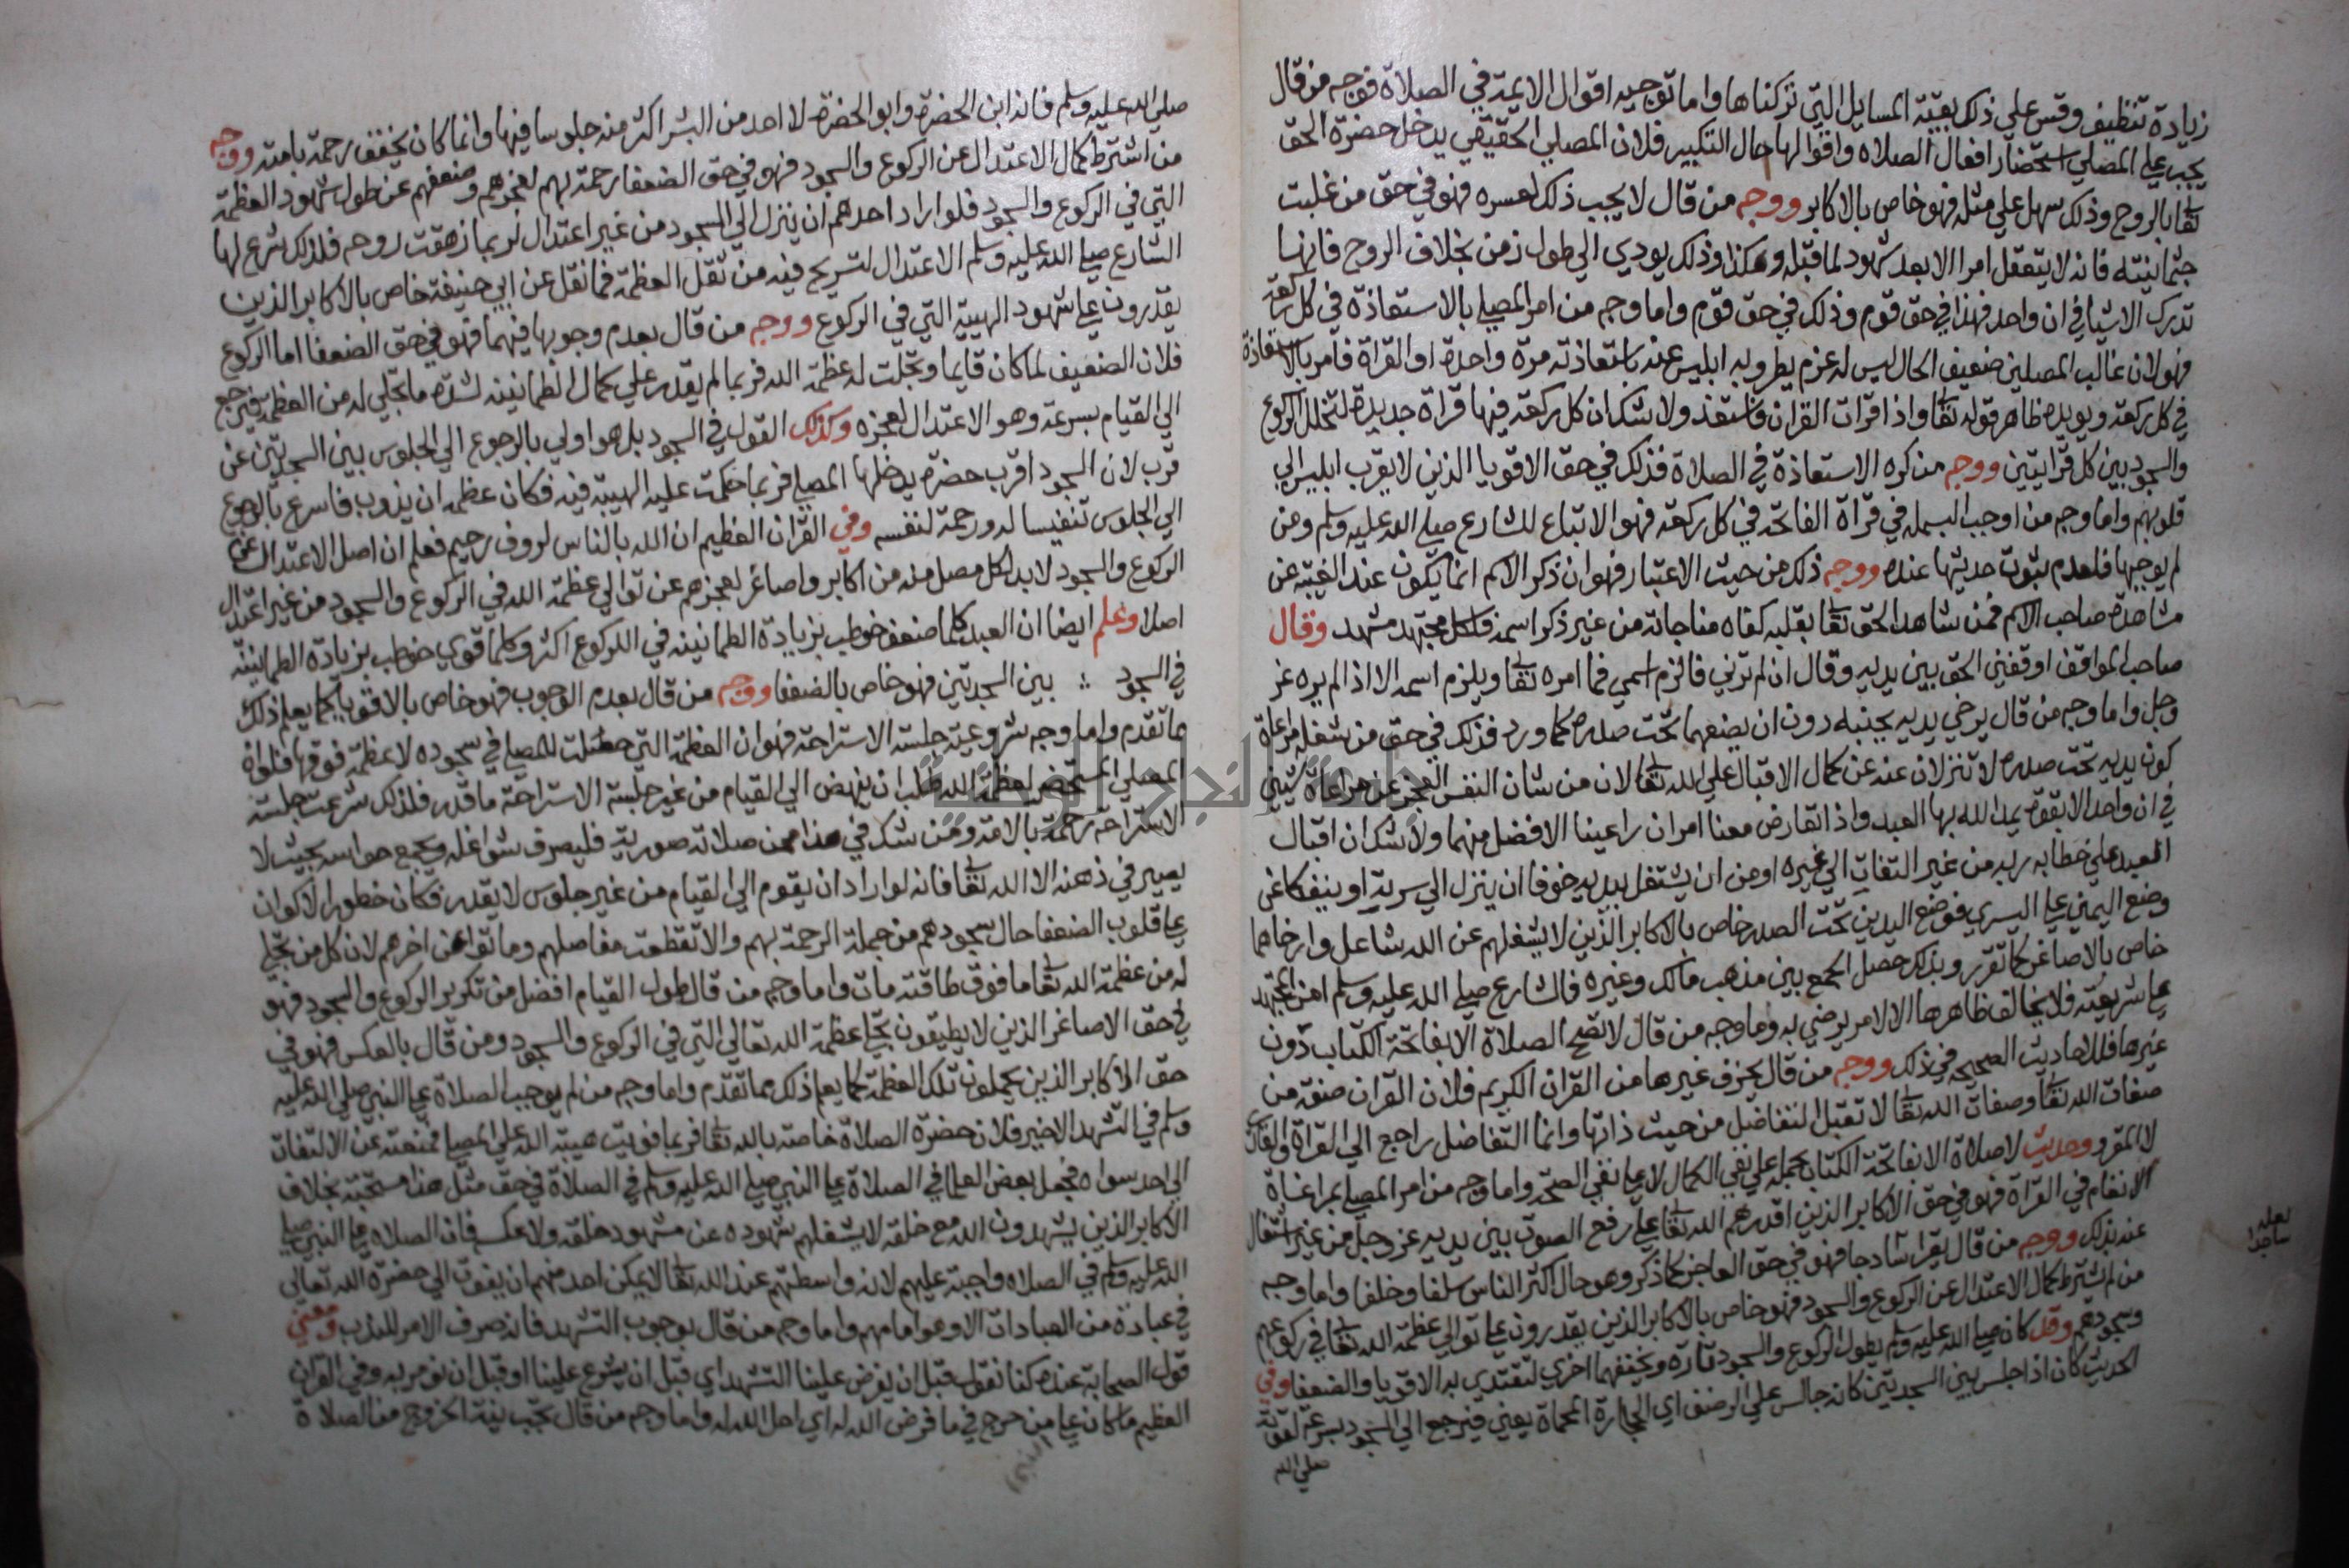 زيادة تنظيف وقس علي ذلك بقية المسايل التي تركناها واما توجيه اقوال الايمة في الصلاة فوجه من قال
يجب علي المصلي استحضار افعال الصلاه واقوالها حال التكبير فلان المصلي الحقيقي يدخل حضرة الحق
تعا بالروح وذلك سهل علي مثله فهو خاص بالاكابر ووجه من قال لا يجب ذلك لعسره فهو في حق من غلبت
جثمانيته فانه لا يتعقل امرا الا بعد شهود لما قبله وهكذا وذلك يودي الي طول زمن بخلاف الروح فانها
تدرك الاشيا في ان واحد فهذا في حق قوم وذلك في حق قوم واما وجه من امر المصلي بالاستعاذة في كل ركعة
فهو لان غالب المصلين ضعيف الحال ليس له عزم يطرد به ابليس عنه باستعاذته مرة واحدة او القراة فامر بالاستعاذة
في كل ركعة ويويده ظاهر قوله تعا واذا قرات القران فاستعذ ولا شك ان كل ركعة فيها قراة جديدة لتخلل الركوع
والسجود بين كل قرايتين ووجه من كره الاستعاذة في الصلاة فذلك في حق الاقويا الذين لا يقرب ابليس الي
قلوبهم واما وجه من اوجب البسمله في قراة الفاتحة في كل ركعة فهو الاتباع للشارع صلي الله عليه وسلم ومن
لم يوجبها فلعدم ثبوت حديثها عنده ووجه ذلك من حيث الاعتبار فهو ان ذكر الاسم انما يكون عند الغيبة عن
مشاهدة صاحب الاسم فمن شاهد الحق تعا بقلبه كفاه مناجاته من غير ذكر اسمه فلكل مجتهد مشهد وقال
صاحب المواقف اوقفني الحق بين يديه وقال ان لم ترني فالزم اسمي فما امره تعا ويلزم اسمه الا اذا لم يره عز
وجل واما وجه من قال يرخي يديه بجنبه دون ان يضعهما تحت صدره كما ورد فذلك في حق من شغله مراعاة
كون يديه تحت صدره لا تنزلان عنه عن كمال الاقبال علي الله تعا لان من شان النفس العجز عن مراعاة شيئين
في ان واحد الا بقوة يمد الله بها العبد واذا تعارض معنا امران راعينا الافضل منهما ولا شك ان اقبال
العبد علي خطابه ربه من غير التفات الي غيره اومن ان يشتغل بيديه خوفا ان ينزل الي سرته او ينفكا عن
وضع اليمني علي اليسري فوضع اليدين تحت الصدر خاص بالاكابر الذين لا يشغلهم عن الله شاغل وارخاهما
خاص بالاصاغر كما تقرر وبذلك حصل الجمع بين مذهب مالك وغيره فالشارع صلي الله عليه وسلم امن المجتهد
علي شريعته فلا يخالف ظاهرها الا لامر يرضي به وما وجه من قال لا تصح الصلاة الا بفاتحة الكتاب دون
غيرها فللاحاديث الصحيحه في ذلك ووجه من قال يجزي غيرها من القران الكريم فلان القران صفة من
صفات الله تعا وصفات الله تعا لا تقبل التفاضل من حيث ذاتها وانما التفاضل راجع الي القراة والقاري
لا المقرو وحديث لا صلاة الا بفاتحة الكتاب يحمله علي نفي الكمال لا علي نفي الصحة واما وجه من امر المصلي بمراعاة
الانغام في القراة فهو في حق الاكابر الذين اقدرهم الله تعا علي رفع الصوت بين يديه عز وجل من غير اشتغال
عنه بذلك ووجه من قال يقرا ساذجا فهو في حق العاجز كما ذكر وهو حال اكثر الناس سلفا وخلفا واما وجه
من لم يشترط كمال الاعتدال عن الركوع والسجود فهو خاص بالاكابر الذين يقدرون علي توالي عظمة الله تعا في ركوعهم
وسجودهم وقد كان صلي الله عليه وسلم يطول الركوع والسجود تارة ويخففهما اخري لتقتدي به الاقويا والضعفا وفي
الحديث كان اذا جلس بين السجدتين كانه جالس علي الرضف اي الحجارة المحماة يعني فيرجع الي السجود بسرعة لقوته
صلي الله
صلي الله عليه وسلم فانه ابن الحضرة وابو الحضرة لا احد من البشر اكثر منه جلوسا فيها وانما كان يخفف رحمة بامته ووجه
من اشترط كمال الاعتدال عن الركوع والسجود فهو في حق الضعفا رحمة بهم لعجزهم وضعفهم عن طول شهود العظمة
التي في الركوع والسجود فلو اراد احدهم ان ينزل الي السجود من غير اعتدال لربما زهقت روحه فلذلك شرع لها
الشارع صلي الله عليه وسلم الاعتدال لتستريح فيه من ثقل العظمة فما نقل عن ابي حنيفة خاص بالاكابر الذين
يقدرون علي شهود الهيبة التي في الركوع ووجه من قال بعدم وجوبها فيهما فهو في حق الضعفا اما الركوع
فلان الضعيف لما كان قايما وتجلت له عظمة الله فربما لم يقدر علي كمال الطمانينه لشدة ما تجلي له من العظمة فيرجع
الي القيام بسرعة وهو الاعتدال لعجزه وكذلك القول في السجود بل هو اولي بالرجوع الي الجلوس بين السجدتين عن
قرب لان السجود اقرب حضرة يدخلها المصلي فربما حكمت عليه الهيبة فيه فكان عظمه ان يذوب فاسرع بالرجوع
الي الجلوس تنفيسا له ورحمة لنفسه وفي القران العظيم ان الله بالناس لروف رحيم فعلم ان اصل الاعتدال عن
الركوع والسجود لا بد لكل مصل منه من اكابر واصاغر لعجزهم عن توالي عظمة الله في الركوع والسجود من غير اعتدال
اصلا وعلم ايضا ان العبد كلما ضعف خوطب بزيادة الطمانينه في الركوع اكثر وكلما قوي خوطب بزيادة الطمانينة
في السجود ∴ بين السجدتين فهو خاص بالضعفا ووجه من قال بعدم الوجوب فهو خاص بالاقويا كما يعلم ذلك
مما تقدم واما وجه شروعية جلسة الاستراحة فهو ان العظمة التي حصلت للمصلي في سجوده لا عظمة فوقها فلو ان
المصلي المستحضر لعظمة الله طلب ان ينهض الي القيام من غير جلسة الاستراحة ما قدر فلذلك شرعت جلسة
الاستراحه رحمة بالامة ومن شك في هذا ممن صلاته صورية فليصرف شواغله ويجمع حواسه بحيث لا
يصير في ذهنه الا الله تعا فانه لو اراد ان يقوم الي القيام من غير جلوس لا يقدر فكان خطور الاكوان
علي قلوب الضعفا حال سجودهم من جملة الرحمة بهم والا تقطعت مفاصلهم وماتوا عن اخرهم لان كل من تجلي
له من عظمة الله تعا ما فوق طاقته مات واما وجه من قال طول القيام افضل من تكرير الركوع والسجود فهو
في حق الاصاغر الذين لا يطيقون تجلي عظمة الله تعالي التي في الركوع والسجود ومن قال بالعكس فهو في
حق الاكابر الذين يحملون تلك العظمة كما يعلم ذلك مما تقدم واما وجه من لم يوجب الصلاة علي النبي صلي الله عليه
وسلم في التشهد الاخير فلان حضرة الصلاة خاصة بالله تعا فربما قويت هيبة الله علي المصلي فمنعته عن الالتفات
الي احد سواه فجعل بعض العلما في الصلاة علي النبي صلي الله عليه وسلم في الصلاة في حق مثل هذا مستحبة بخلاف
الاكابر الذين يشهدون الله مع خلقه لا يشغلهم شهوده عن مشهود خلقه ولا عكسه فان الصلاه علي النبي صلي
الله عليه وسلم في الصلاه واجبة عليهم لانه واسطتهم عند الله تعا لا يمكن احد منهم ان يفوت الي حضرة الله تعالي
في عبادة من العبادات الا وهو امامهم واما وجه من قال بوجوب التشهد فانه صرف الامر للندب ومعني
قول الصحابة عنده كنا نقول قبل ان يفرض علينا التشهد اي قبل ان يشرع علينا او قبل ان نومر به وفي القران
العظيم ما كان علي من حرج في ما فرض الله له اي احل الله له واما وجه من قال تجب نية الخروج من الصلاة